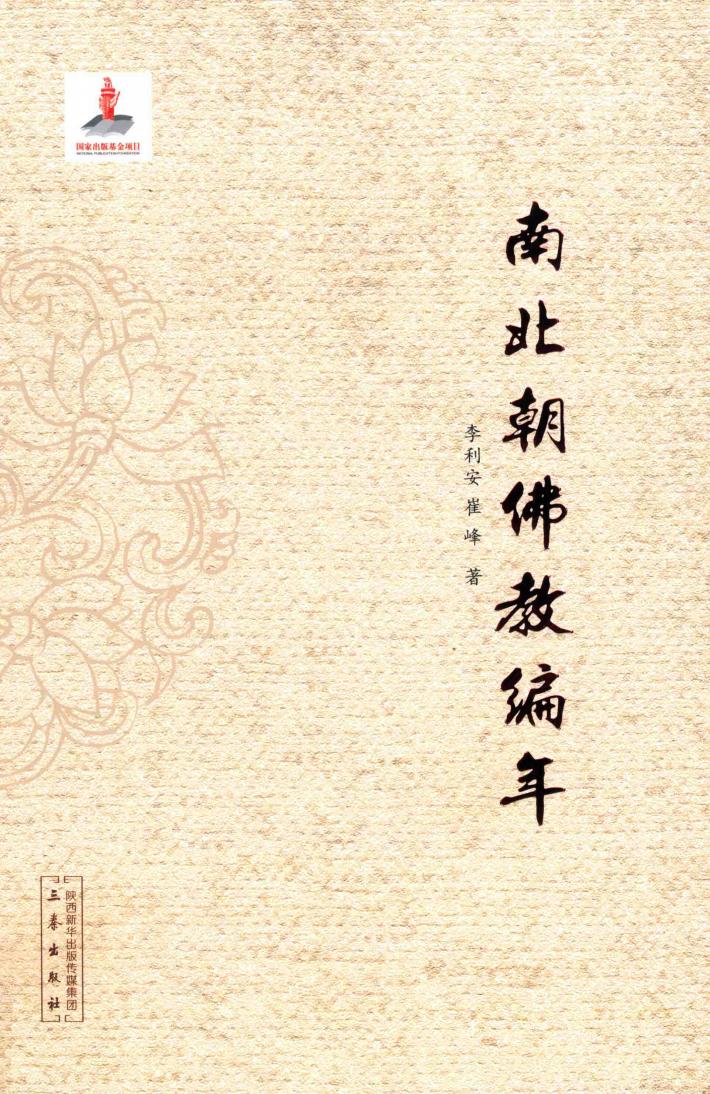 国家出版基金项目
NATIONAL PUBLICATION FOUNDATION
南北朝佛教编年
李利安 崔峰 著
陕西新华出版传媒集团
三秦出版社